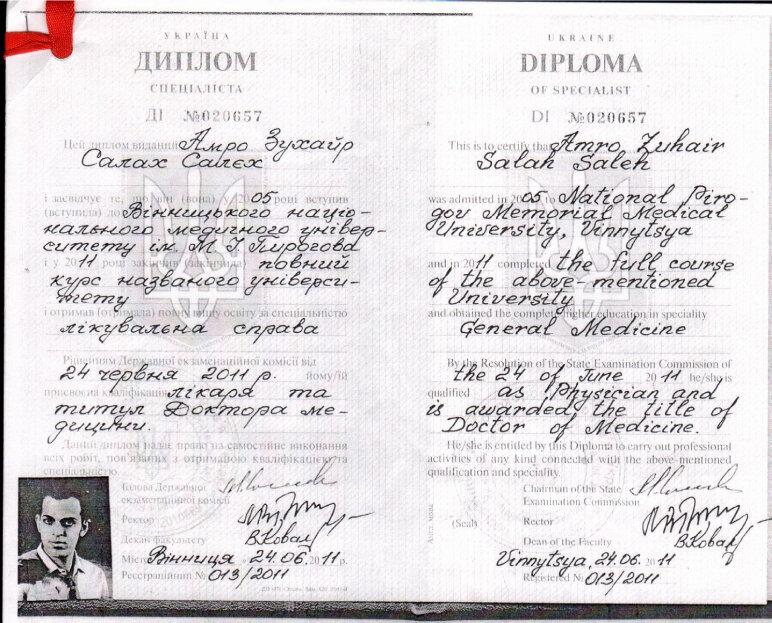 УКРАЇНА
ДИПЛОМ
СПЕЦІАЛІСТА
ДІ №020657
Цей диплом виданий Амро Зухайр
Салах Салєх
і засвідчує те, що він (вона) у 2005 році вступив
(вступила) до Вінницького націо-
нального медичного універ-
ситету ім. М.І. Пирогова
і у 2011 році закінчив (закінчила) повний
курс названого універси-
тету
і отримав (отримала) повну вищу освіту за спеціальністю
лікувальна справа
Рішенням Державної екзаменаційної комісії від
24 червня 2011 р. йому/їй
присвоєна кваліфікація лікаря та
титул Доктора ме-
дицини.
Даний диплом надає право на самостійне виконання
всіх робіт, пов'язаних з отриманою кваліфікацією та
спеціальністю.
Голова Державної
екзаменаційної комісії
Ректор
Декан факультету В.Ковал
Місто Вінниця 24.06.2011 р.
Реєстраційний № 013/2011
UKRAINE
DIPLOMA
OF SPECIALIST
DI №020657
This is to certify that Amro Zuhair
Salah Saleh
was admitted in 2005 to National Piro-
gov Memorial Medical
University, Vinnytsya
and in 2011 completed the full course
of the above-mentioned
University
and obtained the complete higher education in speciality
General Medicine
By the Resolution of the State Examination Commission of
the 24 of June 2011 he/she is
qualified as Physician and
is awarded the title of
Doctor of Medicine.
He/she is entitled by this Diploma to carry out professional
activities of any kind connected with the above-mentioned
qualification and speciality.
Chairman of the State
Examination Commission
(Seal) Rector
Dean of the Faculty В.Ковал
Vinnytsya, 24.06.2011
Registered № 013/2011